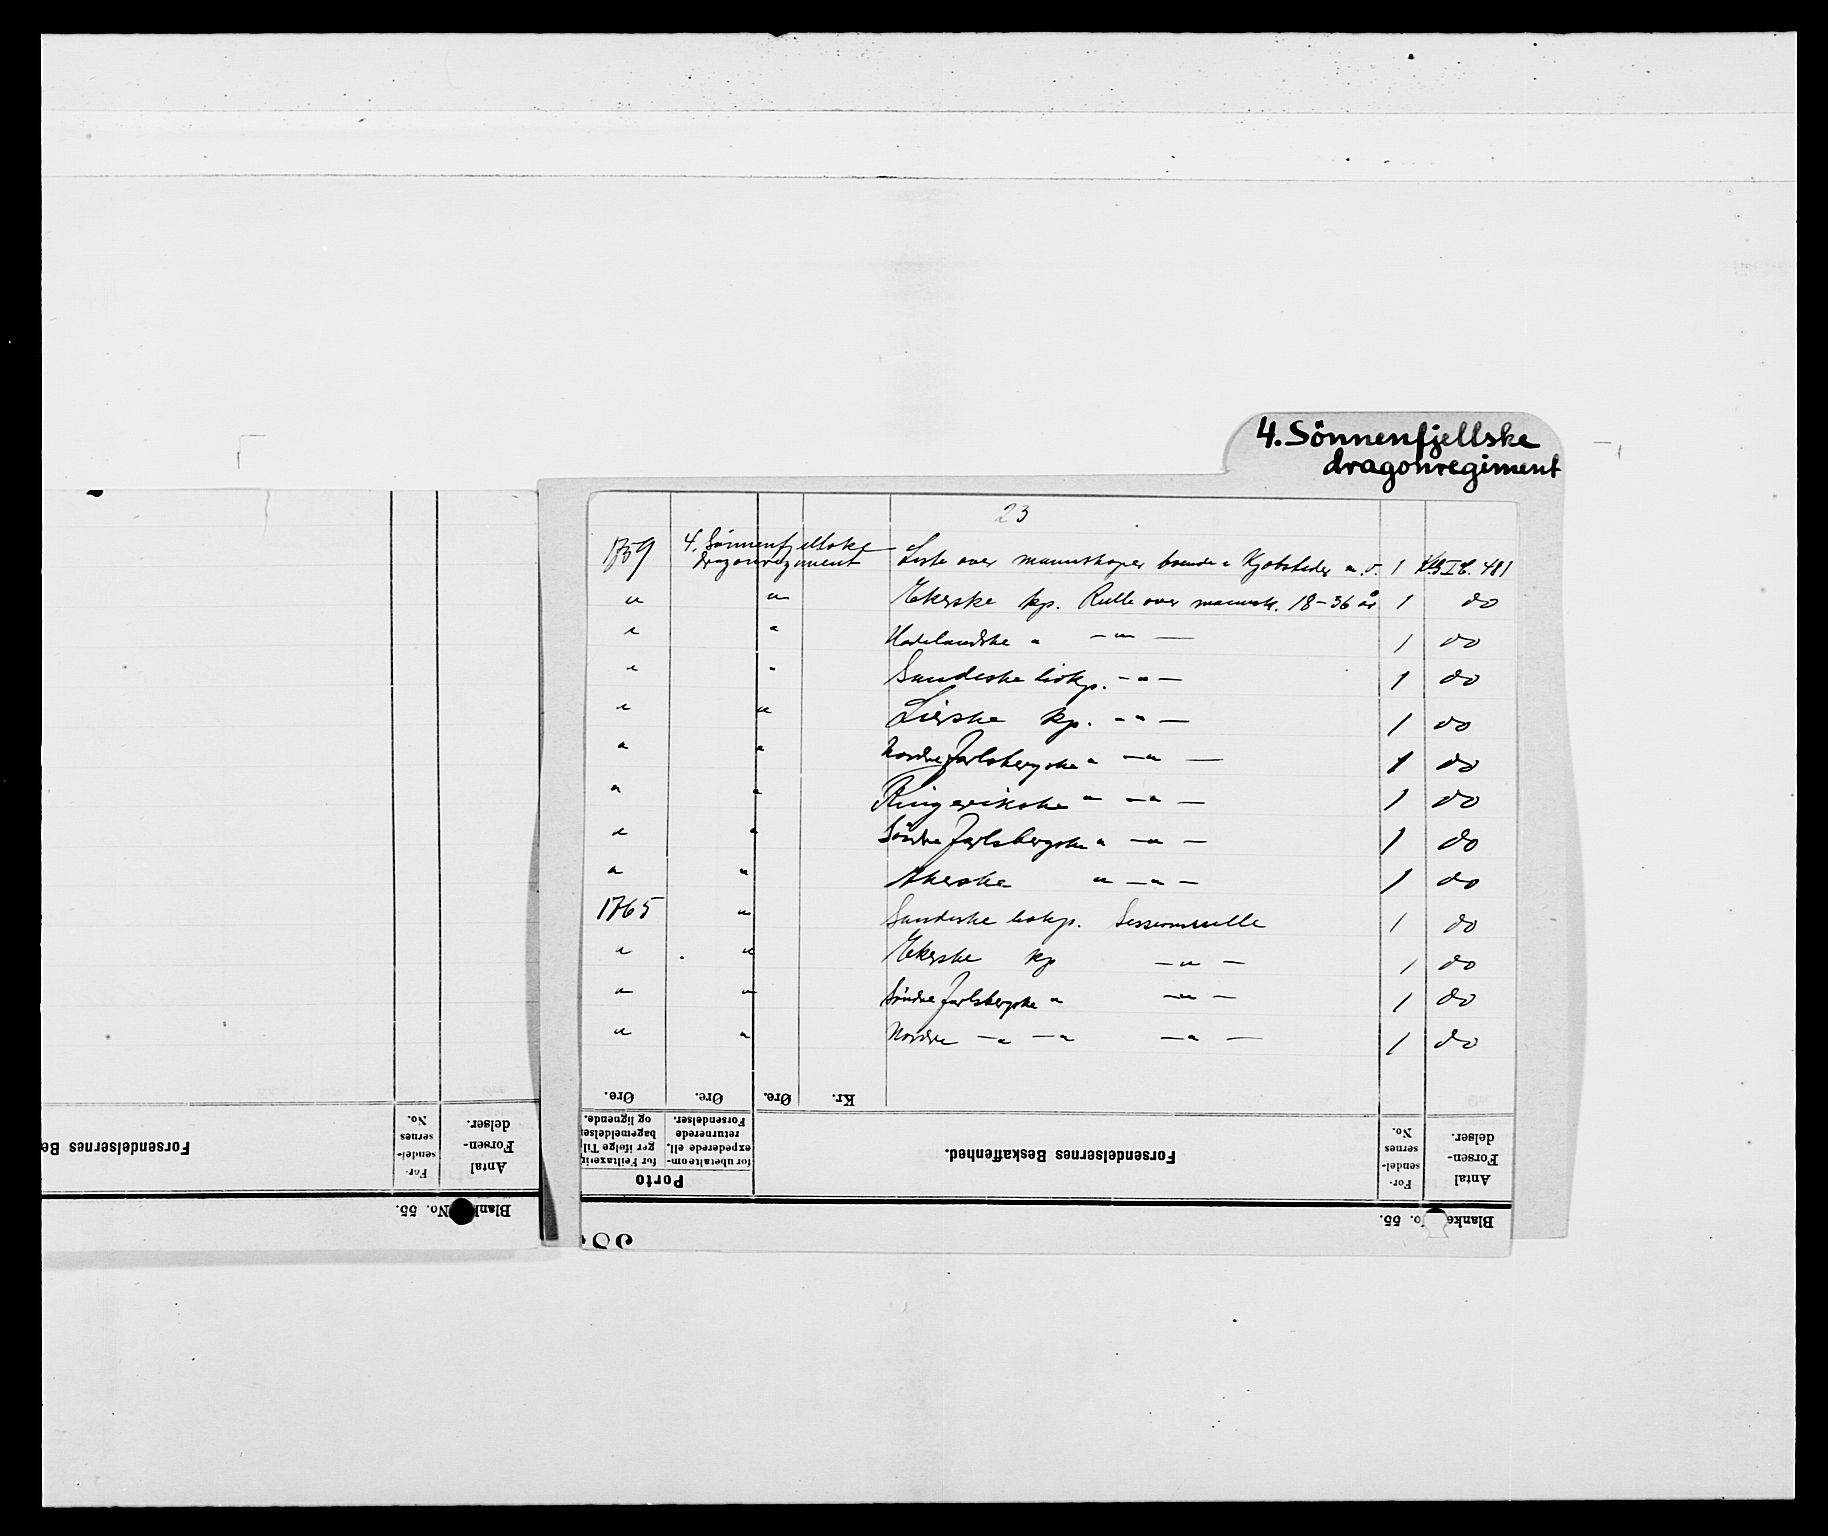 4. Sönnenfjellske
dragonregiment
23
1759 4. Sönnenfjellske dragonregiment Liste over mannskaper boende i Kjøbsteder m.v. 1 481
" " Ekerske kp. Rulle over mannsk. 18-36 år 1 do
" " Hadelandske " — " — 1 do
" " Sandeske livkp. — " — 1 do
" " Lierske kp. — " — 1 do
" " Nordre Jarlsbergske " — " — 1 do
" " Ringerikske " — " — 1 do
" " Söndre Jarlsbergske " — " — 1 do
" " Akerske " — " — 1 do
1765 " Sandeske livkp. Sessionsrulle 1 do
" " Ekerske kp — " — 1 do
" " Söndre Jarlsbergske " — " — 1 do
" " Nordre — " — " — " — 1 do
Øre. Øre. Øre. Kr.
Forsendelsernes Be
For-
sendel-
sernes
No.
Antal
Forsen-
delser.
No. 55.
Porto
for ubetalteom-
expederede ell.
returnerede
Forsendelser.
ger ifølge Til
og lignende.
Forsendelsernes Beskaffenhed.
For-
sendel-
sernes
No.
Antal
Forsen-
delser.
55.